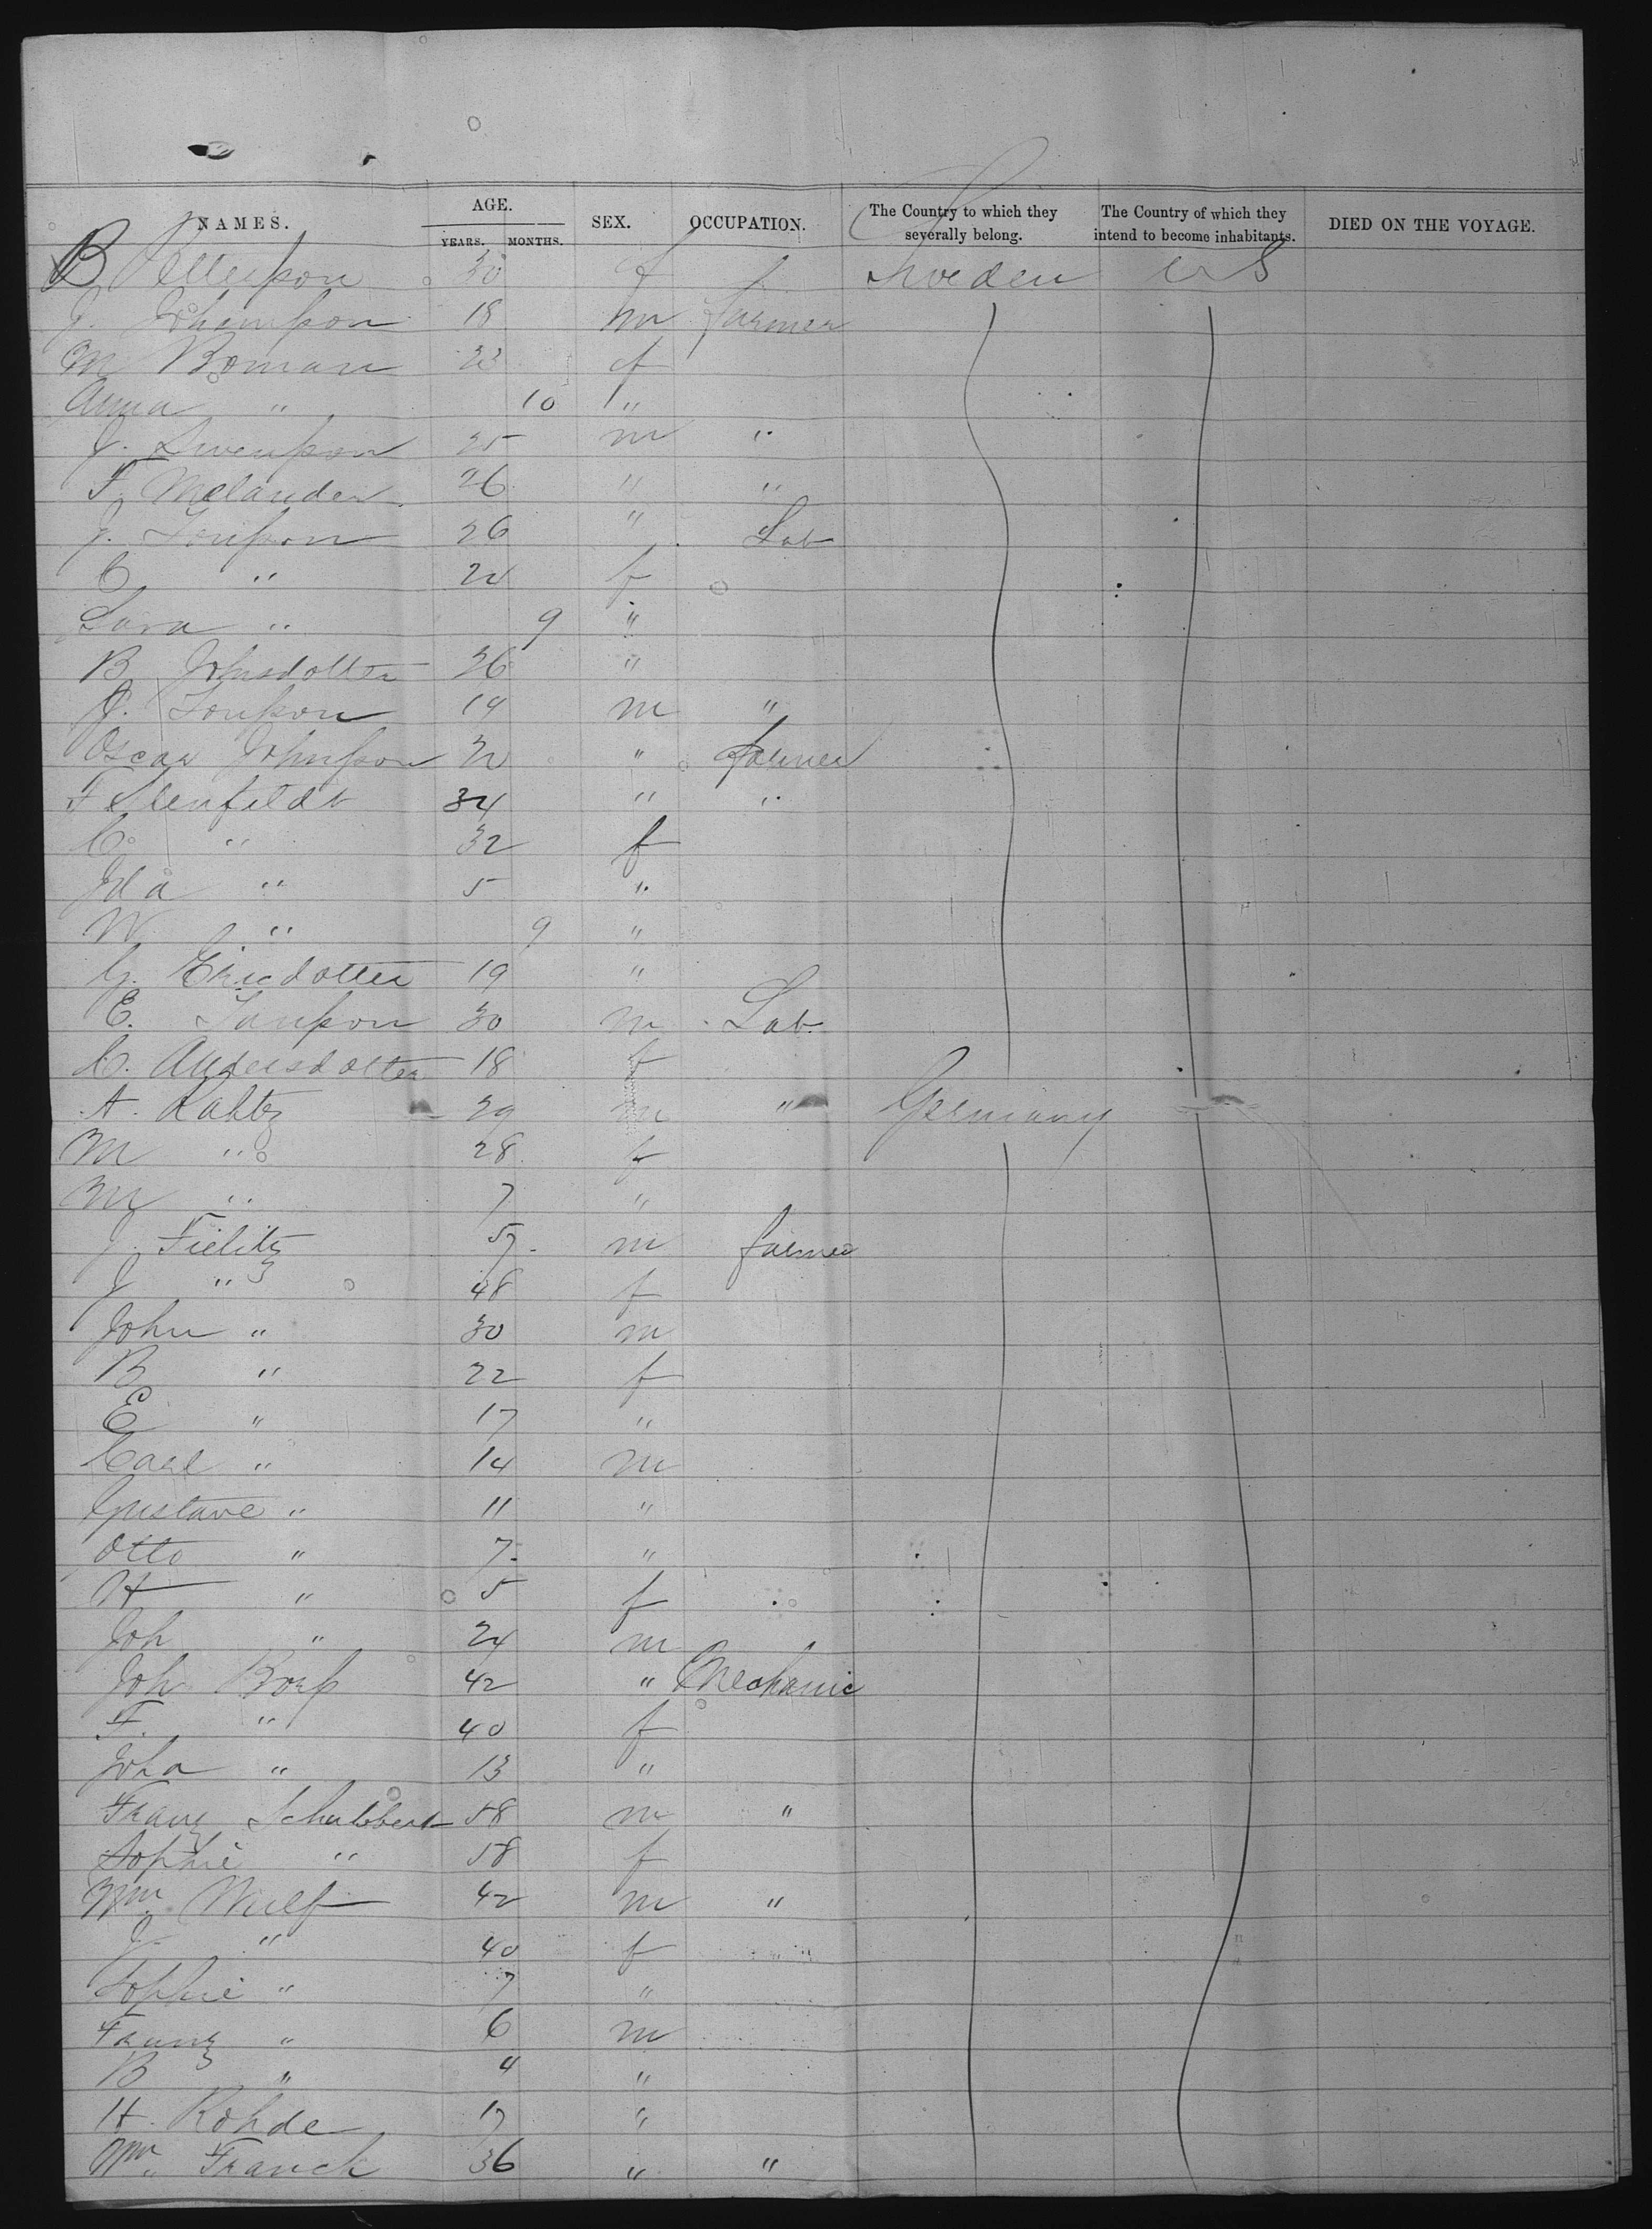 NAMES. AGE. YEARS. MONTHS. SEX. OCCUPATION. The Country to which they severally belong. The Country of which they intend to become inhabitants. DIED ON THE VOYAGE.
B Petterson 30 f Sweden U S
J. Johansson 18 m farmer
M Boman 23 f
Anna " 10 "
J. Swensson 25 m "
F. Melander 26 " "
J. Tonsson 26 " Lab
C " 24 f
Sara " 9 "
B Johnsdotter 26 "
J. Tonsson 19 m "
Oscar Johnsson 32 " farmer
F Stenfeldt 34 " "
C. " 32 f
Ida " 5 "
W " 9 "
G. Ericdotter 19 "
E. Tansson 30 m Lab
C. Andersdotter 18 f
A. Rahtz 29 m " Germany
M " 28 f
M " 7 "
J. Fielitz 57 m farmer
J " 48 f
John " 30 m
B " 22 f
E " 17 "
Carl " 14 m
Gustave " 11 "
Otto " 7 "
H " 5 f
Joh " 24 m
Joh Boss 42 " Mechanic
F. " 40 f
Joha " 13 "
Franz Schubbert 58 m "
Sophie " 58 f
Wm. Wulf 42 m "
J " 40 f
Sophie " 7 "
Franz " 6 m
B " 4 "
H. Rohde 17 "
Wm. Franck 36 " "